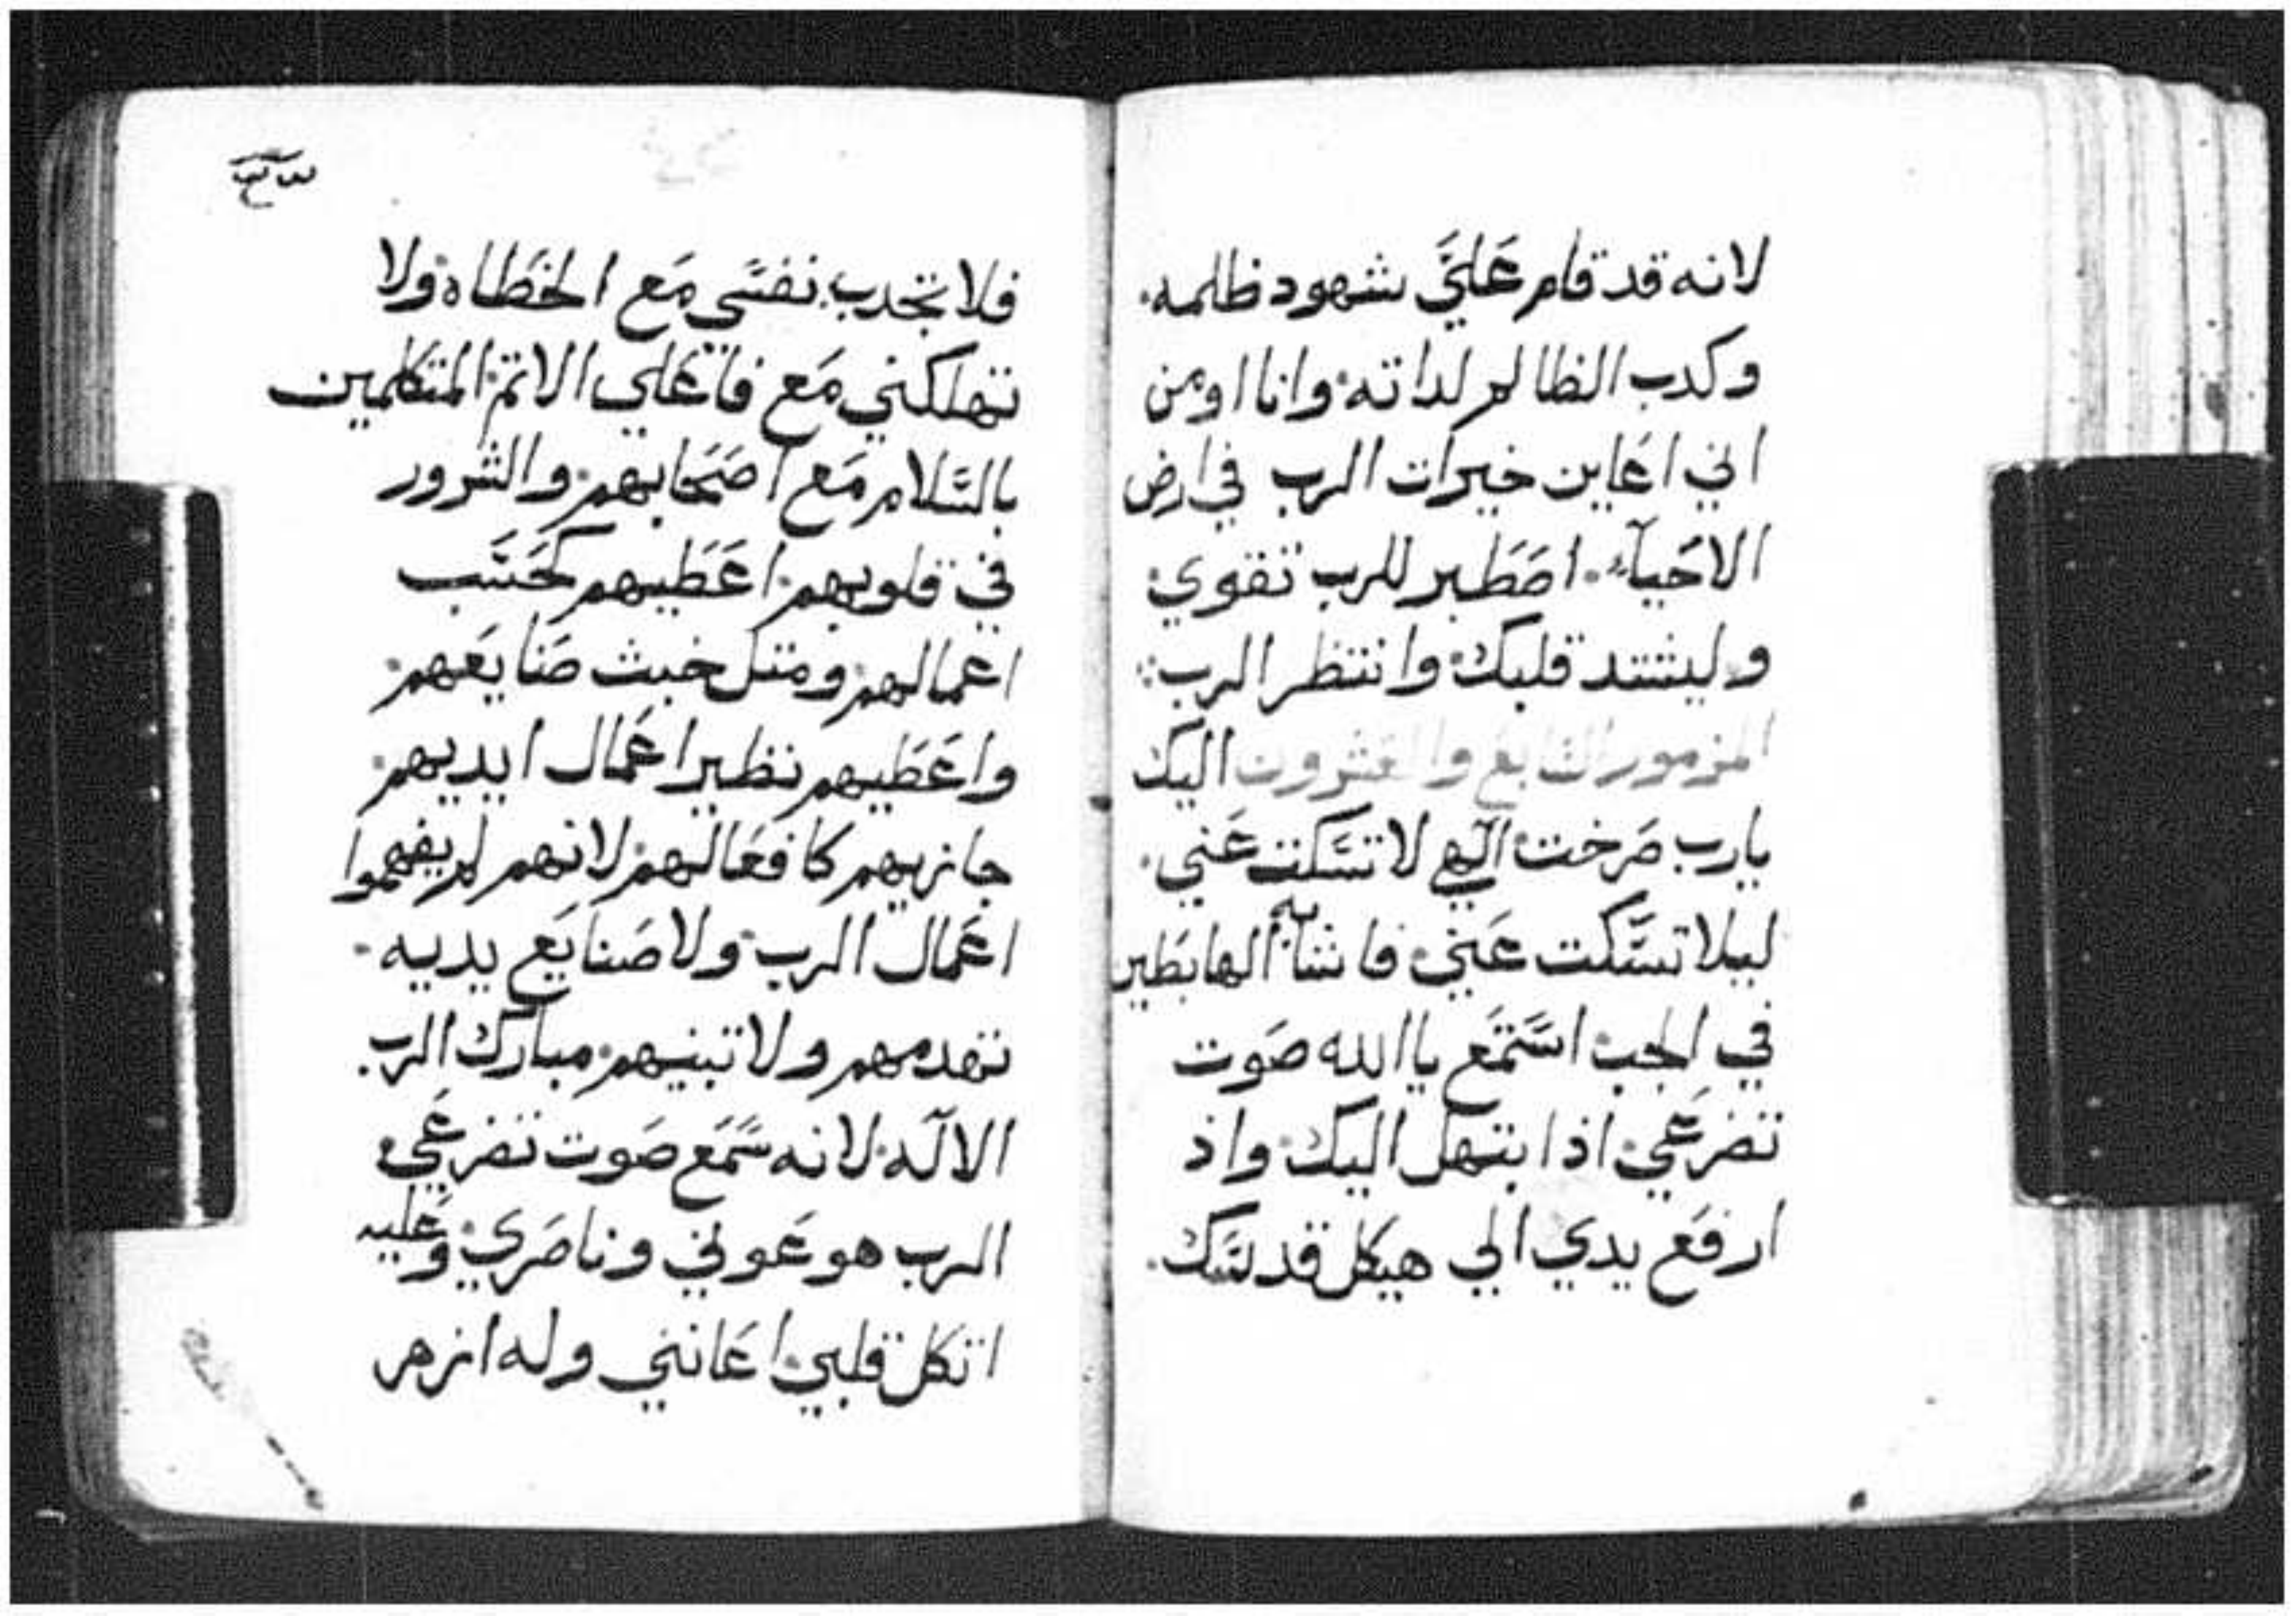 لانه قد قام عَليَّ شهود ظلمه.
وكدب الظالم لداته. وانا اومن
اني اعَاين خيرات الرب في ارض
الاحَيآء. اصَطبر للرب تقوي.
وليشتد قلبك. وانتظر الرب:.
المزمور السَابع والعشرون اليك
يارب صَرخت. آلهي لا تسَكت عَني.
ليلا تسَّكت عَني. فاشَابه الهابطَين
في الجب. استَمَع ياالله صَوت
تضرعَي. اذا ابتهل اليك. واذ
ارفَع يدي الي هيكل قدسَك.
فلا تجدب نفسَي مَع الخطَاه. ولا
تهلكني مَع فاعَلي الاتم. المتكلمين
بالسَّلام مَع اصَحَابهم. والشرور
في قلوبهم. اعَطيهم كحَسَب
اعمَالهم. ومتل خبث صَنايعَهم.
واعَطيهم نظير اعمَال ايديهم.
جازيهم كافعَالهم. لانهم لم يفهموا
اعمَال الرب. ولا صَنايَع يديه.
تهدمهم ولا تبنيهم. مبارك الرب.
الالَه. لانه سَمَع صَوت تضرعَي.
الرب هو عَوني وناصَري. وعَليه
اتكل قلبي. اعَانني وله ازهر